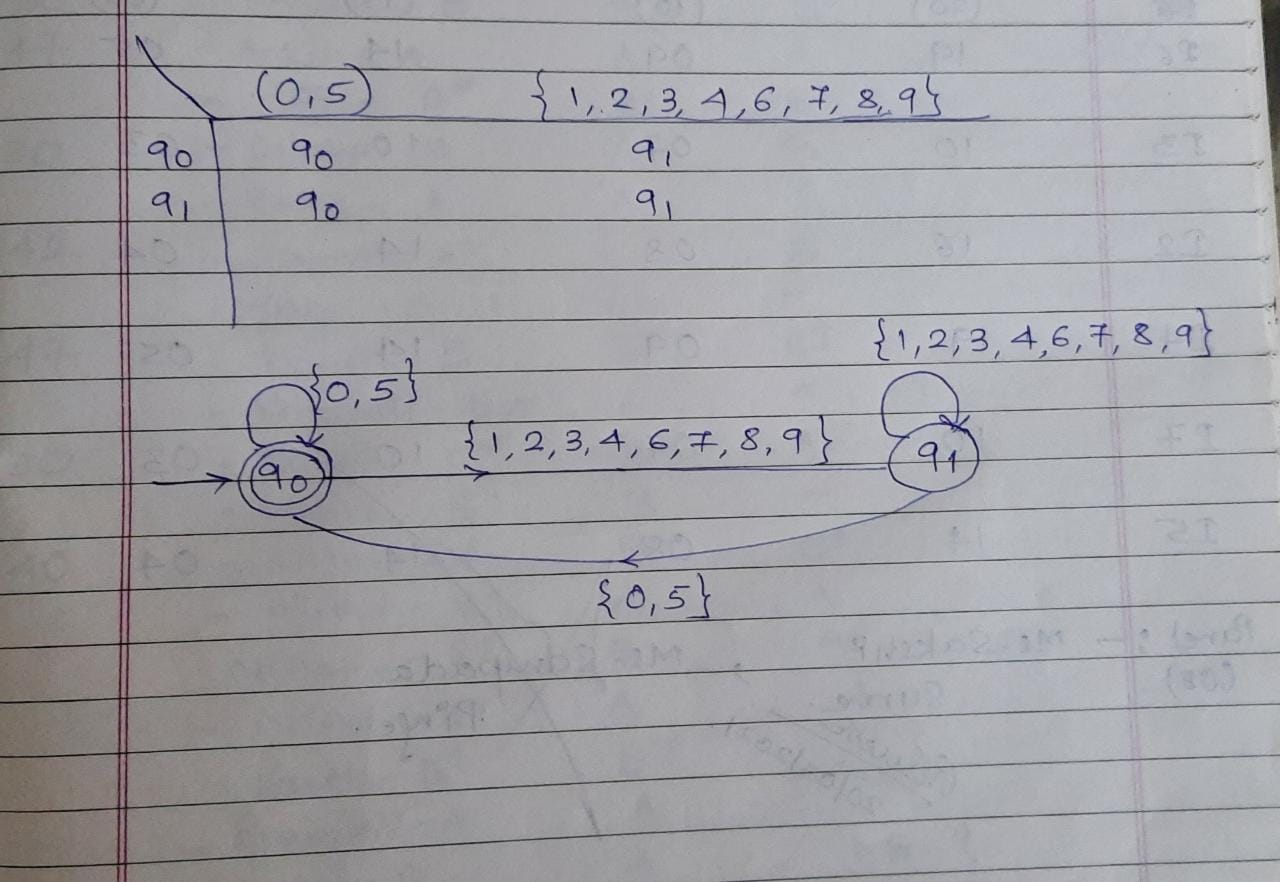 (0,5) {1,2,3,4,6,7,8,9}
q0 q0 q1
q1 q0 q1
{1,2,3,4,6,7,8,9}
{0,5}
{1,2,3,4,6,7,8,9}
q0 q1
{0,5}